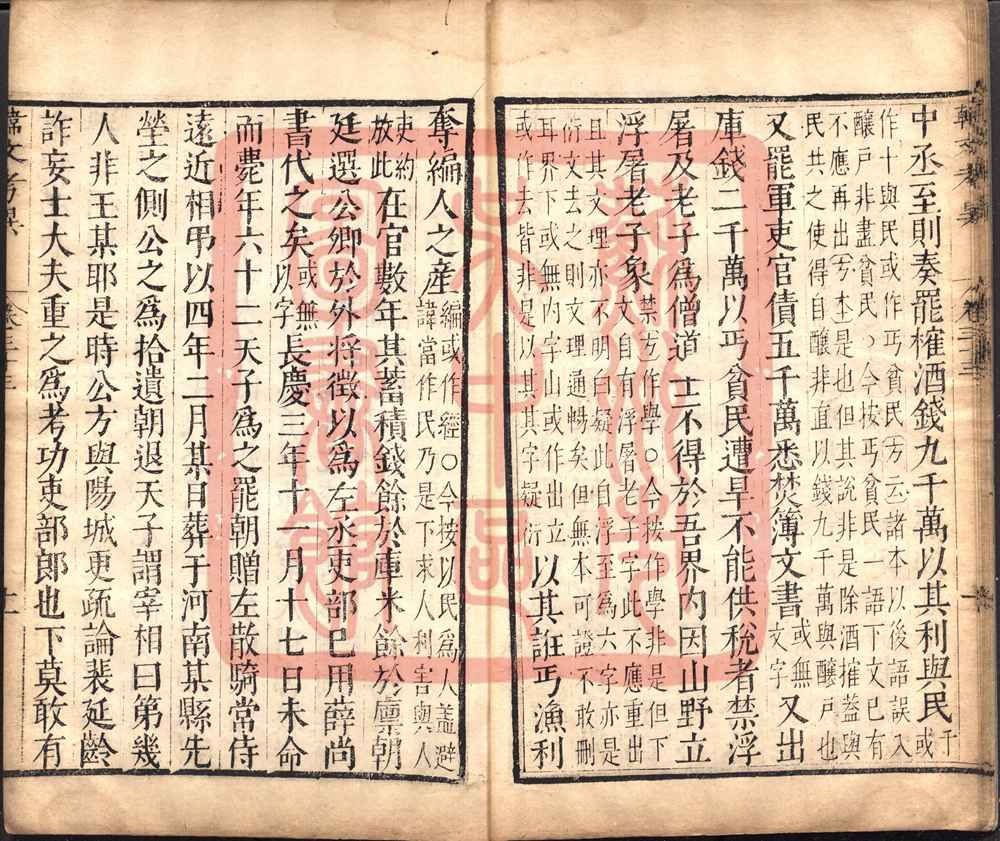 中丞至則奏罷榷酒錢九千萬以其利與民或千
作十與民或作丐貧民方云諸本以後語誤入
釀戶非盡貧民○今按丐貧民一語下文已有
不應再出方本是也但其說非是除酒榷蓋與
民共之使得自釀非直以錢九千萬與釀戶也
又罷軍吏官債五千萬悉焚簿文書或無文字又出
庫錢二千萬以丐貧民遭旱不能供稅者禁浮
屠及老子爲僧道士不得於吾界內因山野立
浮屠老子象禁方作學○今按作學非是但下文自有浮屠老子字此不應重出
且其文理亦不明白疑此自浮至爲六字亦是
衍文去之則文理通暢矣但無本可證不敢刪
耳界下或無內字山或作出立
或作去皆非是以其其字疑衍以其誑丐漁利
奪編人之產編或作經○今按以民爲人蓋避諱當作民乃是下求人利害與人
吏約放此在官數年其蓄積錢餘於庫米餘於廩朝
廷選公卿於外將徵以爲左丞吏部已用薛尚
書代之矣或無以字長慶三年十一月十七日未命
而薨年六十二天子爲之罷朝贈左散騎常侍
遠近相弔以四年二月某日葬于河南某縣先
塋之側公之爲拾遺朝退天子謂宰相曰第幾
人非王某耶是時公方與陽城更疏論裴延齡
詐妄士大夫重之爲考功吏部郎也下莫敢有
韓文考異 卷三十三 十一